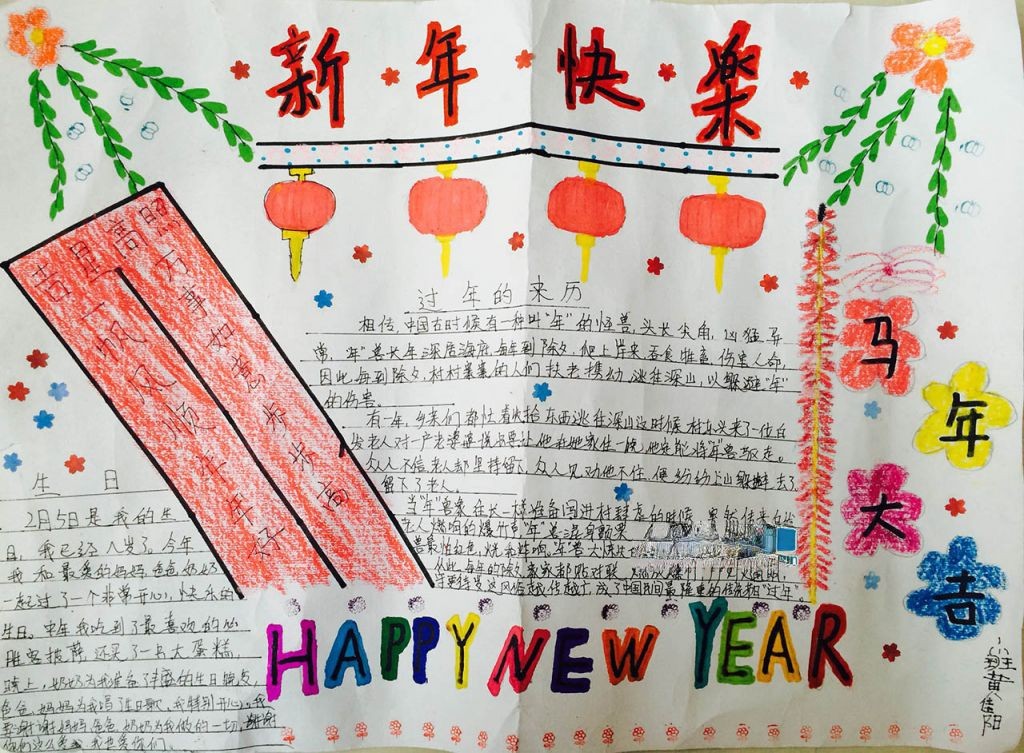 新年快樂
吉星高照
万事如意步步高
一帆风顺年年好
过年的来历
相传,中国古时候有一种叫"年"的怪兽,头长尖角,凶猛异
常,"年"兽长年深居海底,每年到除夕,爬上岸来吞食牲畜伤害人命,
因此,每到除夕,村村寨寨的人们扶老携幼,逃往深山,以躲避"年"
的伤害。
有一年,乡亲们都忙着收拾东西逃往深山这时候村东头来了一位白
发老人对一户老婆婆说只要让他在她家住一晚,他定能将"年"兽驱走。
众人不信,老人却坚持留下,众人见劝他不住,便纷纷上山躲避去了
留下了老人。
当"年"兽象往长一样准备闯进村肆虐的时候,突然传来白
老人烧响的爆竹声"年"兽混身颤栗
兽最怕红色,火光和炸响,"年"兽大惊
从此,每年的除夕,家家都贴对联
生日
2月5日是我的生
日,我已经八岁了。今年
我和最爱的妈妈,爸爸,奶奶
一起过了一个非常开心,快乐的
生日。中午我吃到了最喜欢的必
胜客披萨,还买了一个大蛋糕,
晚上,奶奶为我准备了丰盛的生日晚点,
爸爸,妈妈为我唱了生日歌,我特别开心,我
要谢谢妈妈,爸爸,奶奶为我做的一切,谢谢
你们这么爱我,我也爱你们。
马年大吉
HAPPY NEW YEAR
班黄佳阳